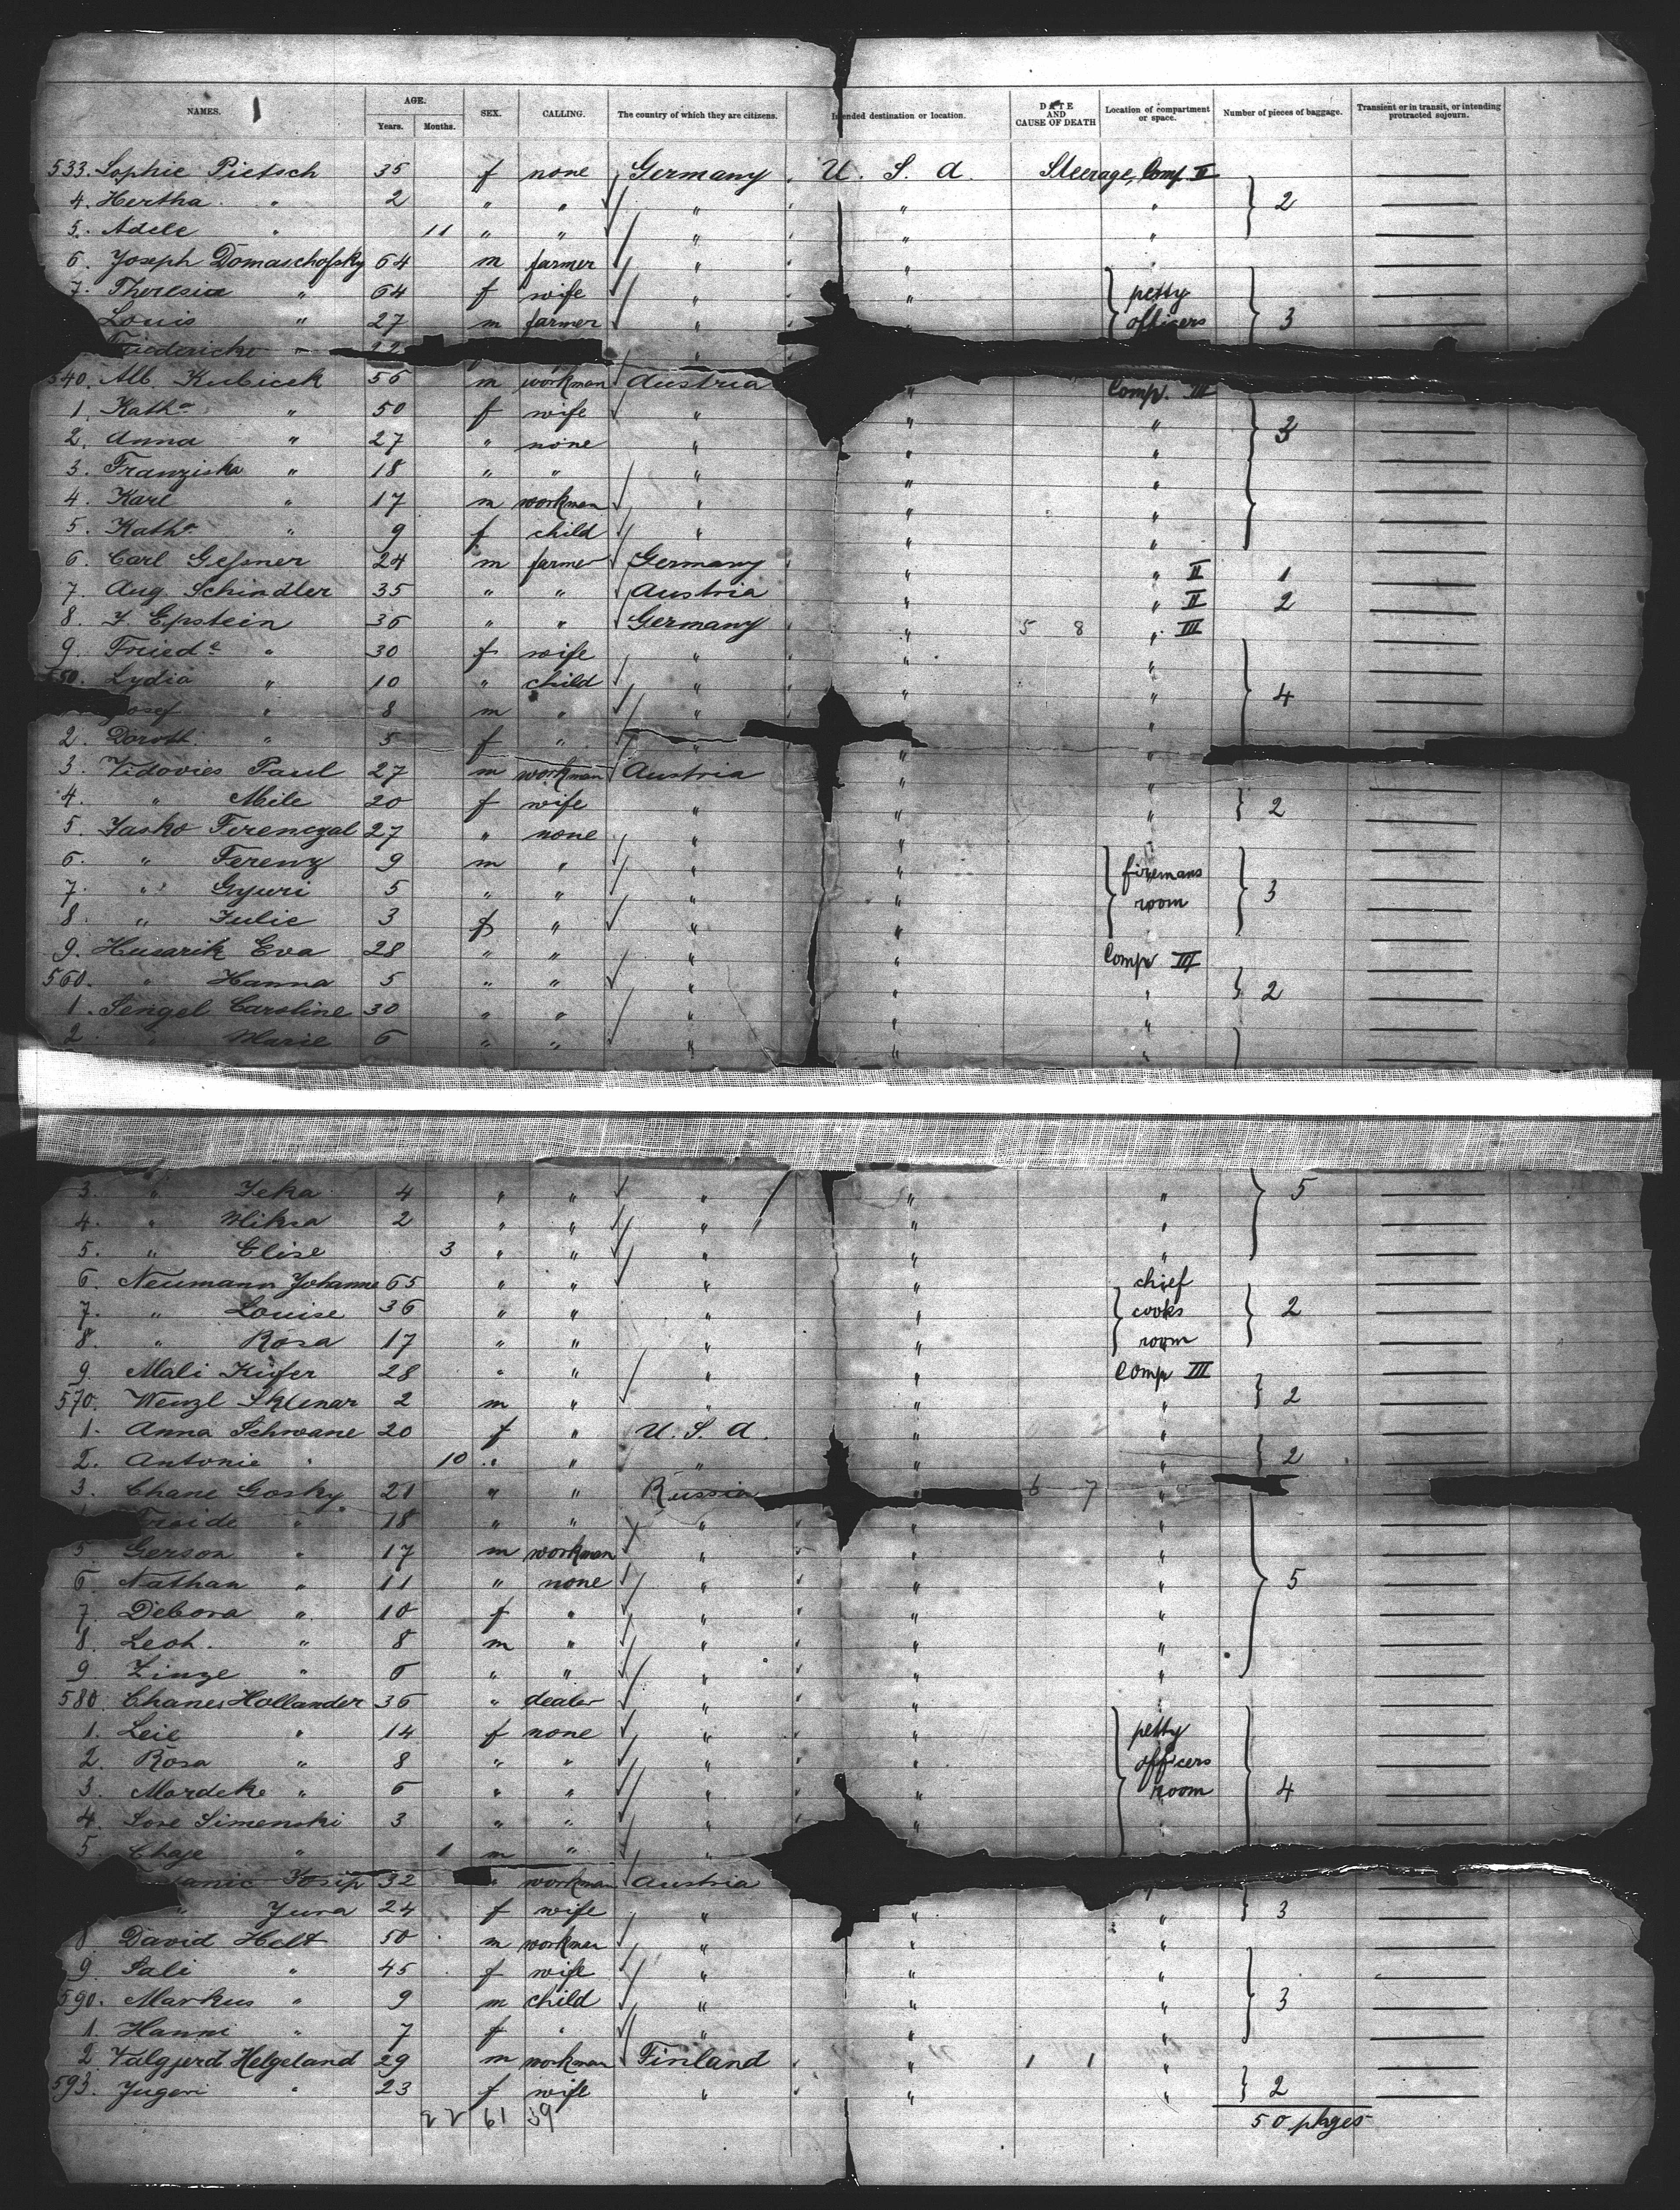 NAMES. AGE. Years. Months. SEX. CALLING. The country of which they are citizens. Intended destination or location. DATE AND CAUSE OF DEATH Location of compartment or space. Number of pieces of baggage. Transient or in transit, or intending protracted sojourn.
533. Sophie Pietsch 35 f none Germany U. S. A. Steerage, Comp. II
4. Hertha " 2 " " " " " 2
5. Adele " 11 " " " " "
6. Joseph Domaschofsky 64 m farmer " "
7. Theresia " 64 f wife " " petty
Louis " 27 m farmer " " officers 3
Friedericke " 22 "
540. Alb. Kubicek 56 m workman Austria " Comp. III
1. Katha " 50 f wife " " "
2. Anna " 27 " none " " " 3
3. Franziska " 18 " " " " "
4. Karl " 17 m workman " " "
5. Katha " 9 f child " " "
6. Carl Geßner 24 m farmer Germany " " II 1
7. Aug. Schindler 35 " " Austria " " II 2
8. J. Epstein 36 " " Germany " 5 8 " III
9. Friede " 30 f wife " " "
550. Lydia " 10 " child " " " 4
Josef " 8 m " " "
2. Doroth. " 5 f " " " "
3. Vidovies Paul 27 m workman Austria " "
4. " Mile 20 f wife " " " 2
5. Jasko Ferenczal 27 " none " "
6. " Ferenz 9 m " " " firemans
7. " Gyuri 5 " " " " room 3
8. " Julie 3 f " " " "
9. Husarik Eva 28 " " " " Comp III
560. " Hanna 5 " " " " " 2
1. Sengel Caroline 30 " " " " "
2. " Marie 6 " " " " "
3. " Jeka 4 " " " " " 5
4. " Miksa 2 " " " " "
5. " Elise 3 " " " " "
6. Neumann Johanne 65 " " " " chief
7. " Louise 36 " " " " cooks 2
8. " Rosa 17 " " " " room
9. Mali Kufer 28 " " " " Comp III
570. Wenzl Sklenar 2 m " " " " 2
1. Anna Schwane 20 f " U. S. A. " "
2. Antonie " 10 " " " " 2
3. Chane Gosky 21 " " Russia 6 7 "
" 18 " " " " "
5. Gerson " 17 m workman " " "
6. Nathan " 11 " none " " " 5
7. Debora " 10 f " " " "
8. Leoh. " 8 m " " " "
9. Zinze " 6 " " " " "
580. Chanes Hollander 36 " dealer " " "
1. Leie " 14 f none " " petty
2. Rosa " 8 " " " " officers
3. Mordeke " 6 " " " " room 4
4. Sore Simenski 3 " " " "
5. Chaje " 1 m " "
Josip 32 " workman Austria
" Jura 24 f wife " " " 3
8 David Helt 50 m workman " " "
9. Sali " 45 f wife " " "
590. Markus " 9 m child " " " 3
1. Hanni " 7 f " " " "
2 Valgjerd Helgeland 29 m workman Finland " 1 1 "
593. Jugeri " 23 f wife " " " 2
22 61 39 50 pkges